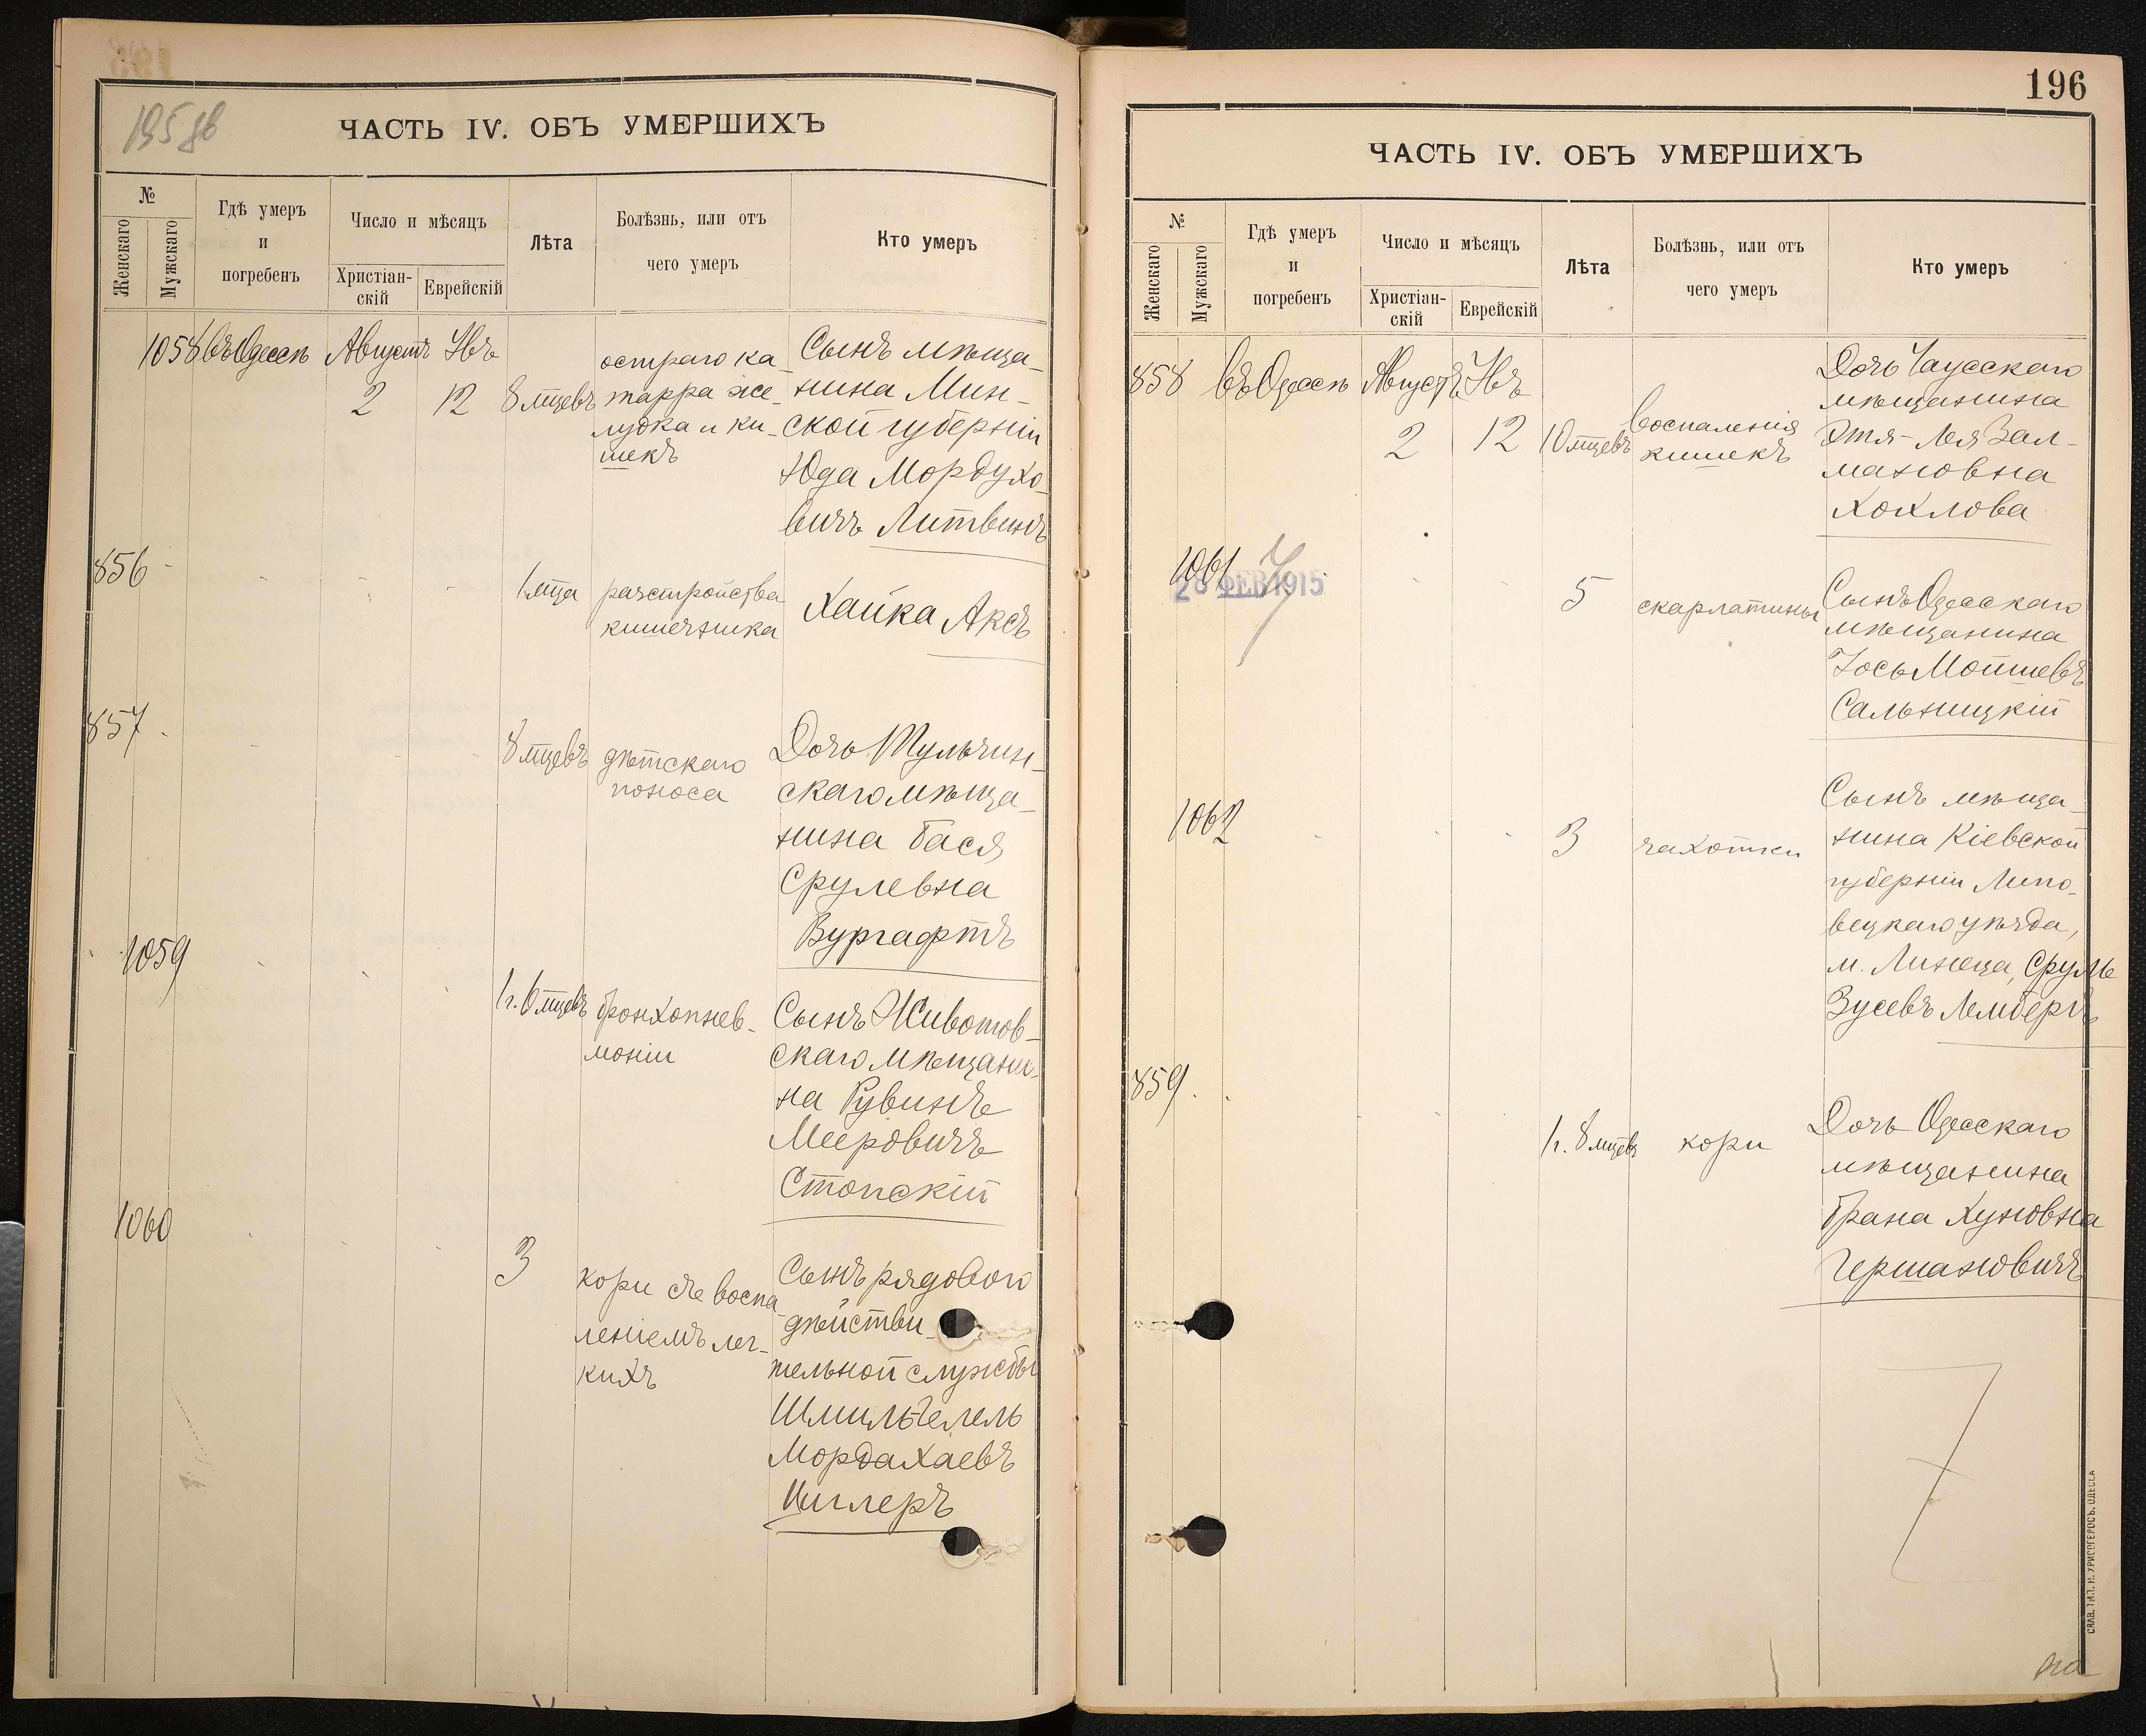 195 об
ЧАСТЬ IV. ОБЪ УМЕРШИХЪ
№
Женскаго
Мужскаго
Гдѣ умеръ
и
погребенъ
Число и мѣсяцъ
Христіан-
скій
Еврейскій
Лѣта
Болѣзнь, или отъ
чего умеръ
Кто умеръ
1058 въ Одессѣ Августъ
2 12 8 мцевъ
остраго ка-
тарра же-
лудка и ки-
шекъ
Сынъ мѣща-
нина Мин-
ской губерніи
Юда Мордухо-
вичъ Литвинъ
856
1 мца
разстройства
кишечника
Хайка Аксъ
857
8 мцевъ
дѣтскаго
поноса
Дочь Тульчин-
скаго мѣща-
нина Бася
Срулевна
Вургафтъ
1059
1 г. 6 мцевъ
бронхопнев-
моніи
Сынъ Животов-
скаго мѣщани-
на Рувинъ
Мееровичъ
Стопскій
1060
3
кори съ воспа-
леніемъ лег-
кихъ
Сынъ рядового
дѣйстви-
тельной службы
Шмиль
Мордахаевъ
Циглеръ
196
ЧАСТЬ IV. ОБЪ УМЕРШИХЪ
№
Женскаго
Мужскаго
Гдѣ умеръ
и
погребенъ
Число и мѣсяцъ
Христіан-
скій
Еврейскій
Лѣта
Болѣзнь, или отъ
чего умеръ
Кто умеръ
858 въ Одессѣ Августъ
2 12 10 мцевъ
воспаленія
кишекъ
Дочь Чаусскаго
мѣщанина
Этя-Лея Зал-
мановна
Хохлова
1061
28 ФЕВ 1915
5
скарлатины
Сынъ Одесскаго
мѣщанина
Іось Мошшевъ
Сальницкій
1062
3
чахотки
Сынъ мѣща-
нина Кіевской
губерніи Липо-
вецкаго уѣзда,
м. Линеца, Сруль
Зусевъ Лембергъ
859
1 г. 8 мцевъ
кори
Дочь Одесскаго
мѣщанина
Брана Хуновна
Гершановичъ
САЛВ. ТИП. Н. ХРИСОГЕЛОСЪ. ОДЕССА